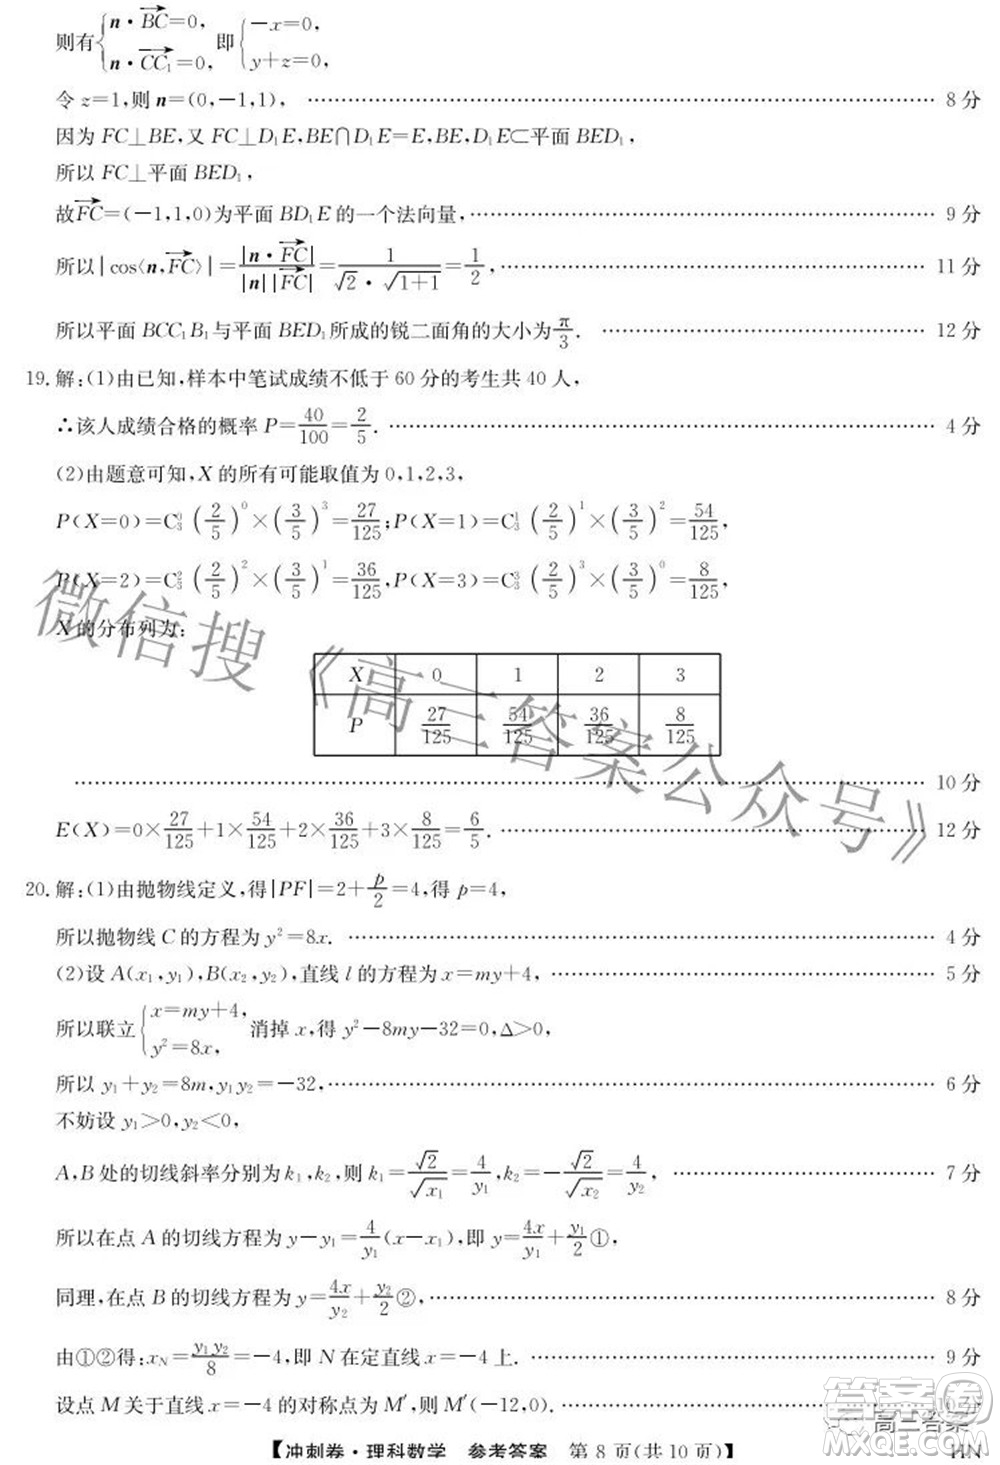 则有{n·BC→=0, n·CC₁→=0, 即{−x=0, y+z=0,
令 z=1,则 n=(0,−1,1), …… 8 分
因为 FC⊥BE,又 FC⊥D₁E,BE∩D₁E=E,BE,D₁E⊂平面 BED₁,
所以 FC⊥平面 BED₁,
故FC→=(−1,1,0)为平面 BD₁E 的一个法向量, …… 9 分
所以|cos⟨n,FC→⟩|=|n·FC→|/|n||FC→|=1/(√2·√(1+1))=1/2, …… 11 分
所以平面 BCC₁B₁与平面 BED₁所成的锐二面角的大小为π/3. …… 12 分
19.解:(1)由已知,样本中笔试成绩不低于 60 分的考生共 40 人,
∴该人成绩合格的概率 P=40/100=2/5. …… 4 分
(2)由题意可知,X 的所有可能取值为 0,1,2,3,
P(X=0)=C₃⁰(2/5)⁰×(3/5)³=27/125;P(X=1)=C₃¹(2/5)¹×(3/5)²=54/125,
P(X=2)=C₃²(2/5)²×(3/5)¹=36/125,P(X=3)=C₃³(2/5)³×(3/5)⁰=8/125,
X 的分布列为:
X 0 1 2 3
P 27/125 54/125 36/125 8/125
…… 10 分
E(X)=0×27/125+1×54/125+2×36/125+3×8/125=6/5. …… 12 分
20.解:(1)由抛物线定义,得|PF|=2+p/2=4,得 p=4,
所以抛物线 C 的方程为 y²=8x. …… 4 分
(2)设 A(x₁,y₁),B(x₂,y₂),直线 l 的方程为 x=my+4, …… 5 分
所以联立{x=my+4, y²=8x, 消掉 x,得 y²−8my−32=0,Δ>0,
所以 y₁+y₂=8m,y₁y₂=−32, …… 6 分
不妨设 y₁>0,y₂<0,
A,B 处的切线斜率分别为 k₁,k₂,则 k₁=√2/√x₁=4/y₁,k₂=−√2/√x₂=4/y₂, …… 7 分
所以在点 A 的切线方程为 y−y₁=4/y₁(x−x₁),即 y=4x/y₁+y₁/2①,
同理,在点 B 的切线方程为 y=4x/y₂+y₂/2②, …… 8 分
由①②得:x_N=y₁y₂/8=−4,即 N 在定直线 x=−4 上. …… 9 分
设点 M 关于直线 x=−4 的对称点为 M′,则 M′(−12,0). …… 10 分
【冲刺卷·理科数学 参考答案 第 8 页(共 10 页)】 HN
微信搜《高三答案公众号》
高三答案
答案圈